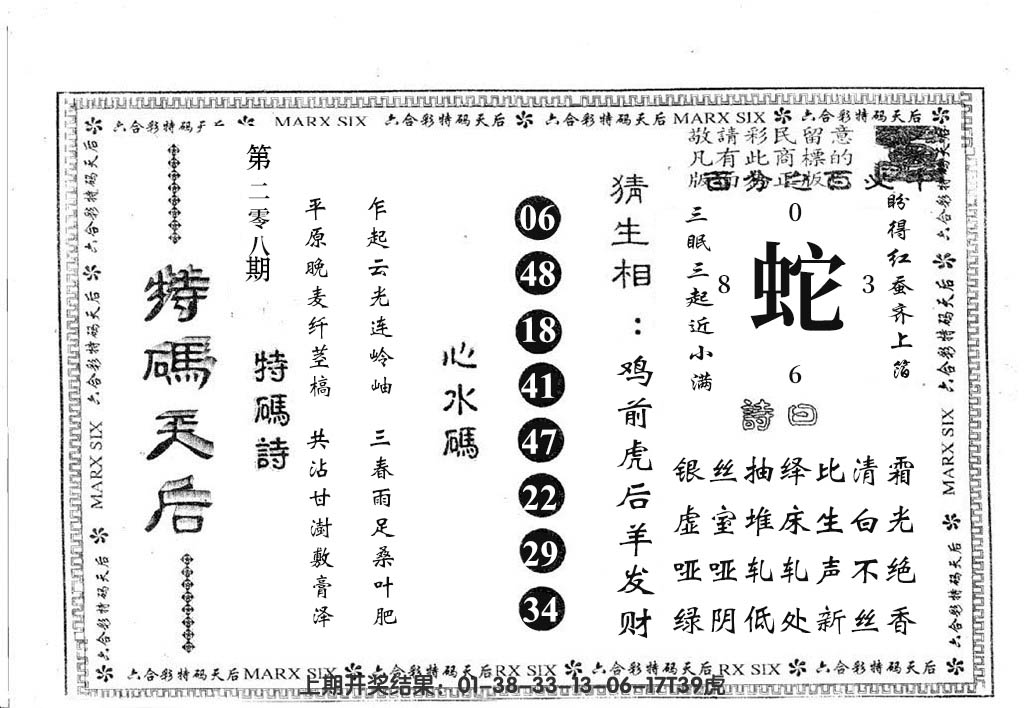 六合彩特码天后 MARX SIX 六合彩特码天后 六合彩特码天后 MARX SIX 六合彩特码天后
敬請彩民留意
凡有此商標的
版面为正版
特碼天后
第二零八期
特碼詩
平原晚麦纤茎槁 共沾甘澍敷膏泽
乍起云光连岭岫 三春雨足桑叶肥
心水碼
06
48
18
41
47
22
29
34
猜生相：鸡前虎后羊发财
三眠三起近小满
0
8
蛇
3
6
盼得红蚕齐上箔
詩曰
银丝抽绎比清霜
虚室堆床生白光
哑哑轧轧声不绝
绿阴低处新丝香
六合彩特码天后
MARX SIX
六合彩特码天后
六合彩特码天后
六合彩特码天后
MARX SIX
六合彩特码天后
六合彩特码天后 MARX SIX 六合彩特码天后 RX SIX 六合彩特码天后 RX SIX 六合彩特码天后
上期开奖结果：01-38-33-13-06-17T39虎